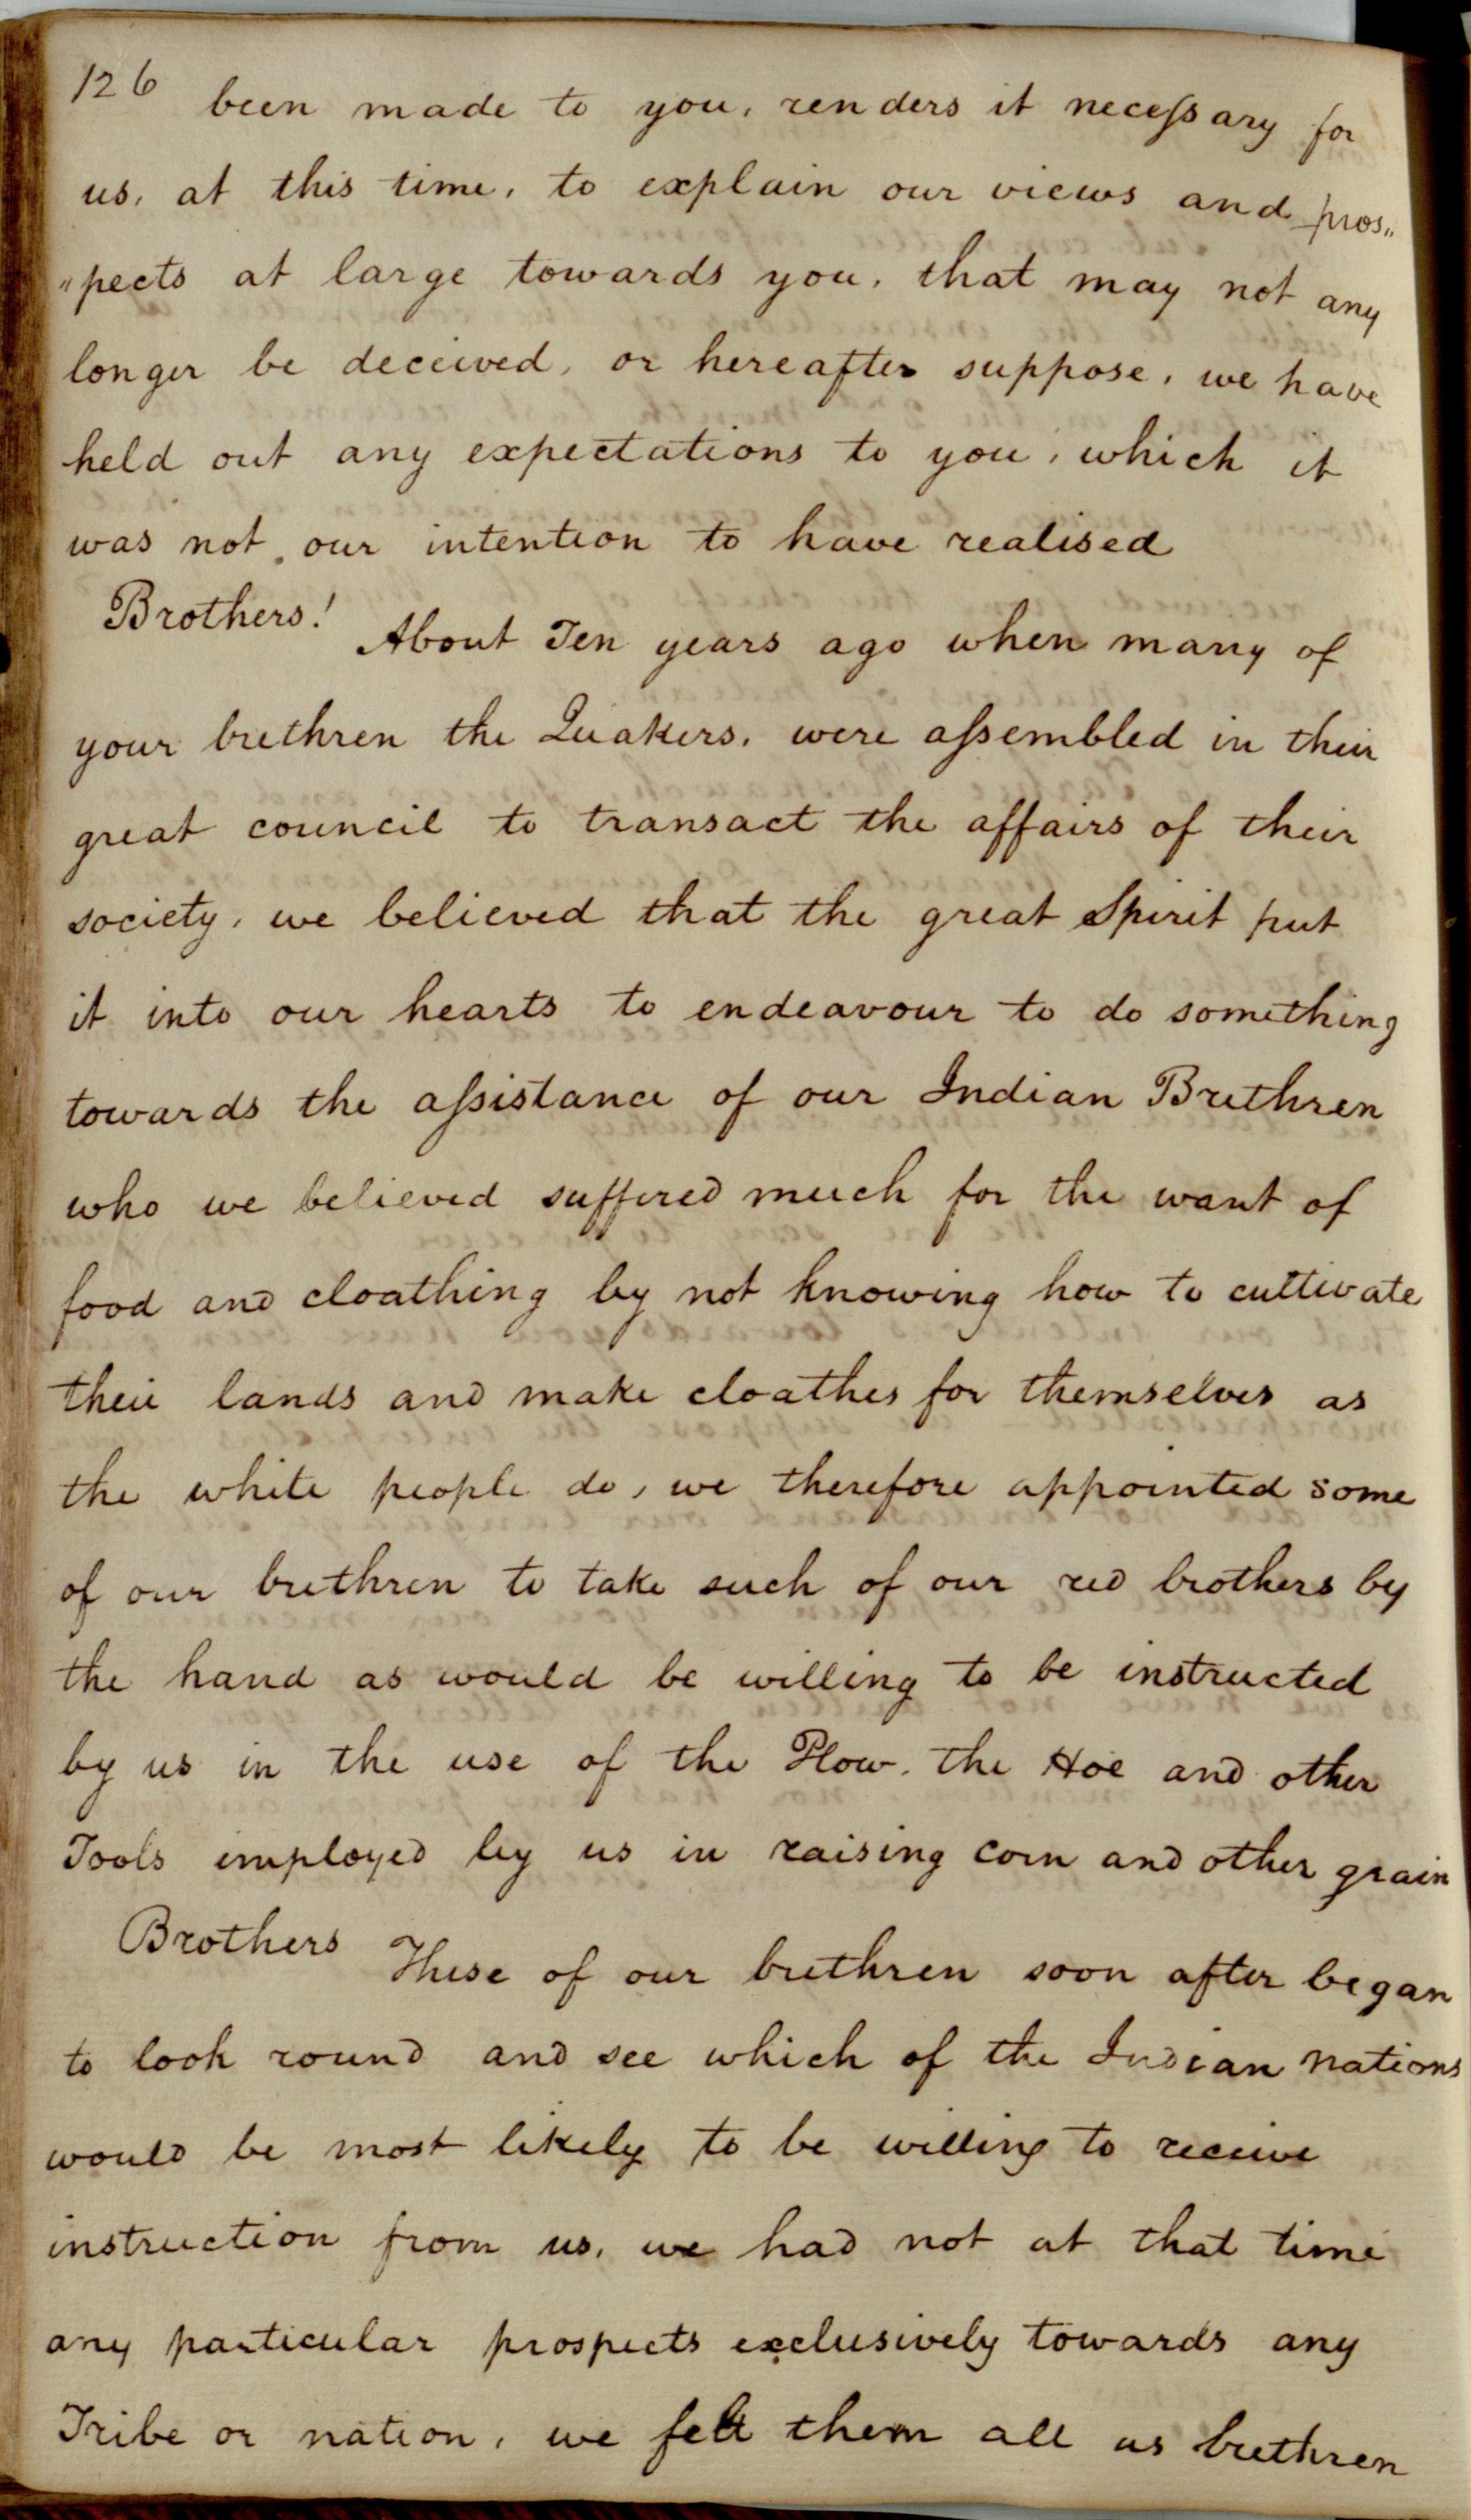 126
been made to you, renders it necessary for
us, at this time, to explain our views and pros„
„pects at large towards you, that may not any
longer be deceived, or hereafter suppose, we have
held out any expectations to you, which it
was not our intention to have realised
Brothers! About Ten years ago when many of
your brethren the Quakers, were assembled in their
great council to transact the affairs of their
society, we believed that the great Spirit put
it into our hearts to endeavour to do something
towards the assistance of our Indian Brethren
who we believed suffered much for the want of
food and cloathing by not knowing how to cultivate
their lands and make cloathes for themselves as
the white people do, we therefore appointed some
of our brethren to take such of our red brothers by
the hand as would be willing to be instructed
by us in the use of the Plow, the Hoe and other
Tools employed by us in raising corn and other grain
Brothers These of our brethren soon after began
to look round and see which of the Indian nations
would be most likely to be willing to receive
instruction from us, we had not at that time
any particular prospects exclusively towards any
Tribe or nation, we felt them all as brethren